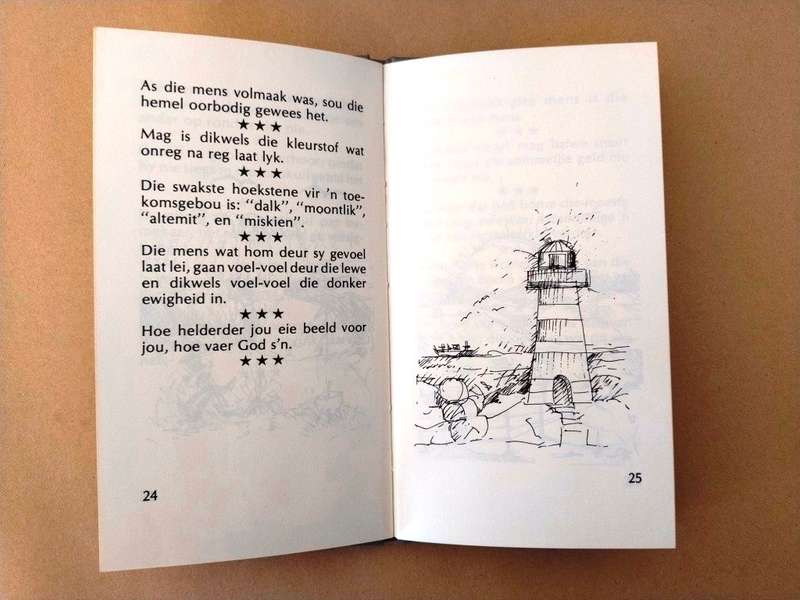 As die mens volmaak was, sou die
hemel oorbodig gewees het.
★ ★ ★
Mag is dikwels die kleurstof wat
onreg na reg laat lyk.
★ ★ ★
Die swakste hoekstene vir 'n toe-
komsgebou is: “dalk”, “moontlik”,
“altemit”, en “miskien”.
★ ★ ★
Die mens wat hom deur sy gevoel
laat lei, gaan voel-voel deur die lewe
en dikwels voel-voel die donker
ewigheid in.
★ ★ ★
Hoe helderder jou eie beeld voor
jou, hoe vaer God s'n.
★ ★ ★
24
25